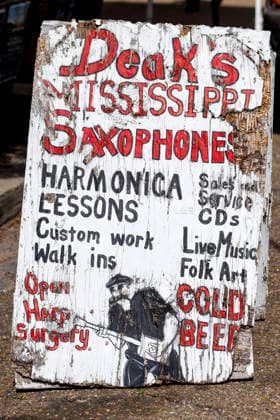 Deak's
MISSISSIPPI
SAXOPHONES
HARMONICA
LESSONS
Custom work
Walk ins
Sales and
Service
CDs
Live Music
Folk Art
Open
Harp
Surgery
COLD
BEER